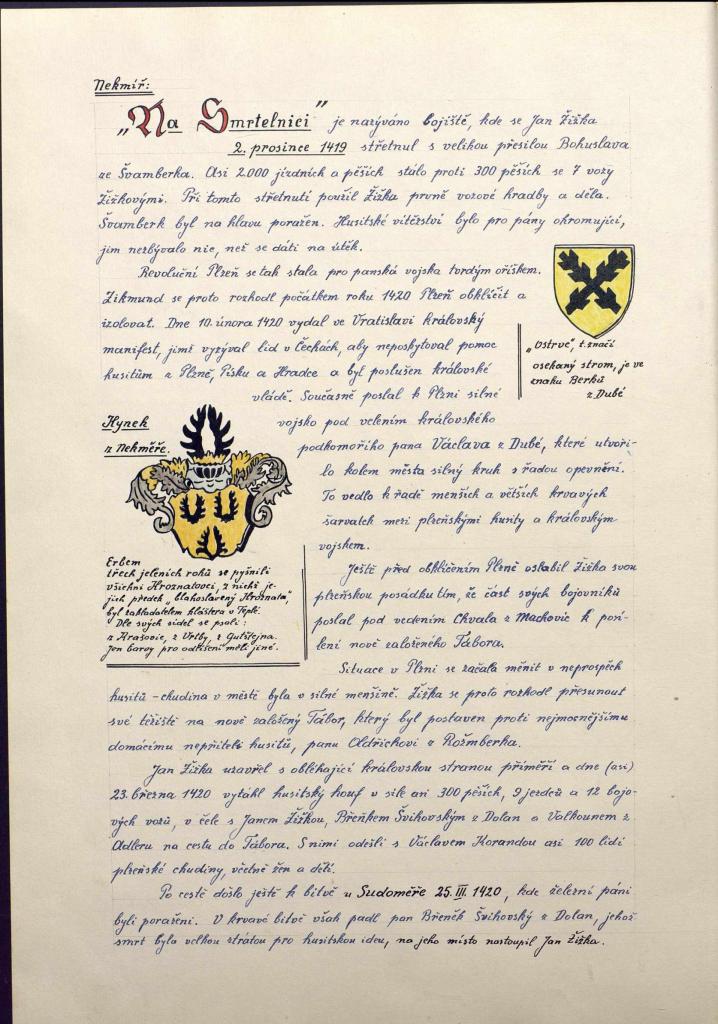 Nekmíř:
„Na Smrtelnici" je nazýváno bojiště, kde se Jan Žižka
2. prosince 1419 střetnul s velikou přesilou Bohuslava
ze Švamberka. Asi 2.000 jízdních a pěších stálo proti 300 pěších se 7 vozy
Žižkovými. Při tomto střetnutí použil Žižka prvně vozové hradby a děla.
Švamberk byl na hlavu poražen. Husitské vítězství bylo pro pány ohromující,
jim nezbývalo nic, než se dáti na útěk.
Revoluční Plzeň se tak stala pro panská vojska tvrdým oříškem.
Zikmund se proto rozhodl počátkem roku 1420 Plzeň obklíčit a
izolovat. Dne 10. února 1420 vydal ve Vratislavi královský
manifest, jímž vyzýval lid v Čechách, aby neposkytoval pomoc
husitům z Plzně, Písku a Hradce a byl poslušen královské
vládě. Současně poslal k Plzni silné
vojsko pod velením královského
podkomořího pana Václava z Dubé, které utvoři-
lo kolem města silný kruh s řadou opevnění.
To vedlo k řadě menších a větších krvavých
šarvatek mezi plzeňskými husity a královským
vojskem.
„Ostrve", t. značí
osekaný strom, je ve
znaku Berků
z Dubé
Hynek
z Nekměře.
Erbem
třech jeleních rohů se pyšnili
všichni Hroznatovci, z nichž je-
jich předek „blahoslavený Hroznata",
byl zakladatelem kláštera v Teplé.
Dle svých sídel se psali:
z Krašovic, z Vrtby, z Gutštejna.
Jen barvy pro odlišení měli jiné.
Ještě před obklíčením Plzně oslabil Žižka svou
plzeňskou posádku tím, že část svých bojovníků
poslal pod vedením Chvala z Machovic k posí-
lení nově založeného Tábora.
Situace v Plzni se začala měnit v neprospěch
husitů - chudina v městě byla v silné menšině. Žižka se proto rozhodl přesunout
své těžiště na nově založený Tábor, který byl postaven proti nejmocnějšímu
domácímu nepříteli husitů, panu Oldřichovi z Rožmberka.
Jan Žižka uzavřel s obléhající královskou stranou příměří a dne (asi)
23. března 1420 vytáhl husitský houf v síle asi 300 pěších, 9 jezdců a 12 bojo-
vých vozů, v čele s Janem Žižkou, Břeňkem Švihovským z Dolan a Valkounem z
Adleru na cestu do Tábora. S nimi odešli s Václavem Korandou asi 100 lidí
plzeňské chudiny, včetně žen a dětí.
Po cestě došlo ještě k bitvě u Sudoměře 25. III. 1420, kde železní páni
byli poraženi. V krvavé bitvě však padl pan Břeněk Švihovský z Dolan, jehož
smrt byla velkou ztrátou pro husitskou ideu, na jeho místo nastoupil Jan Žižka.